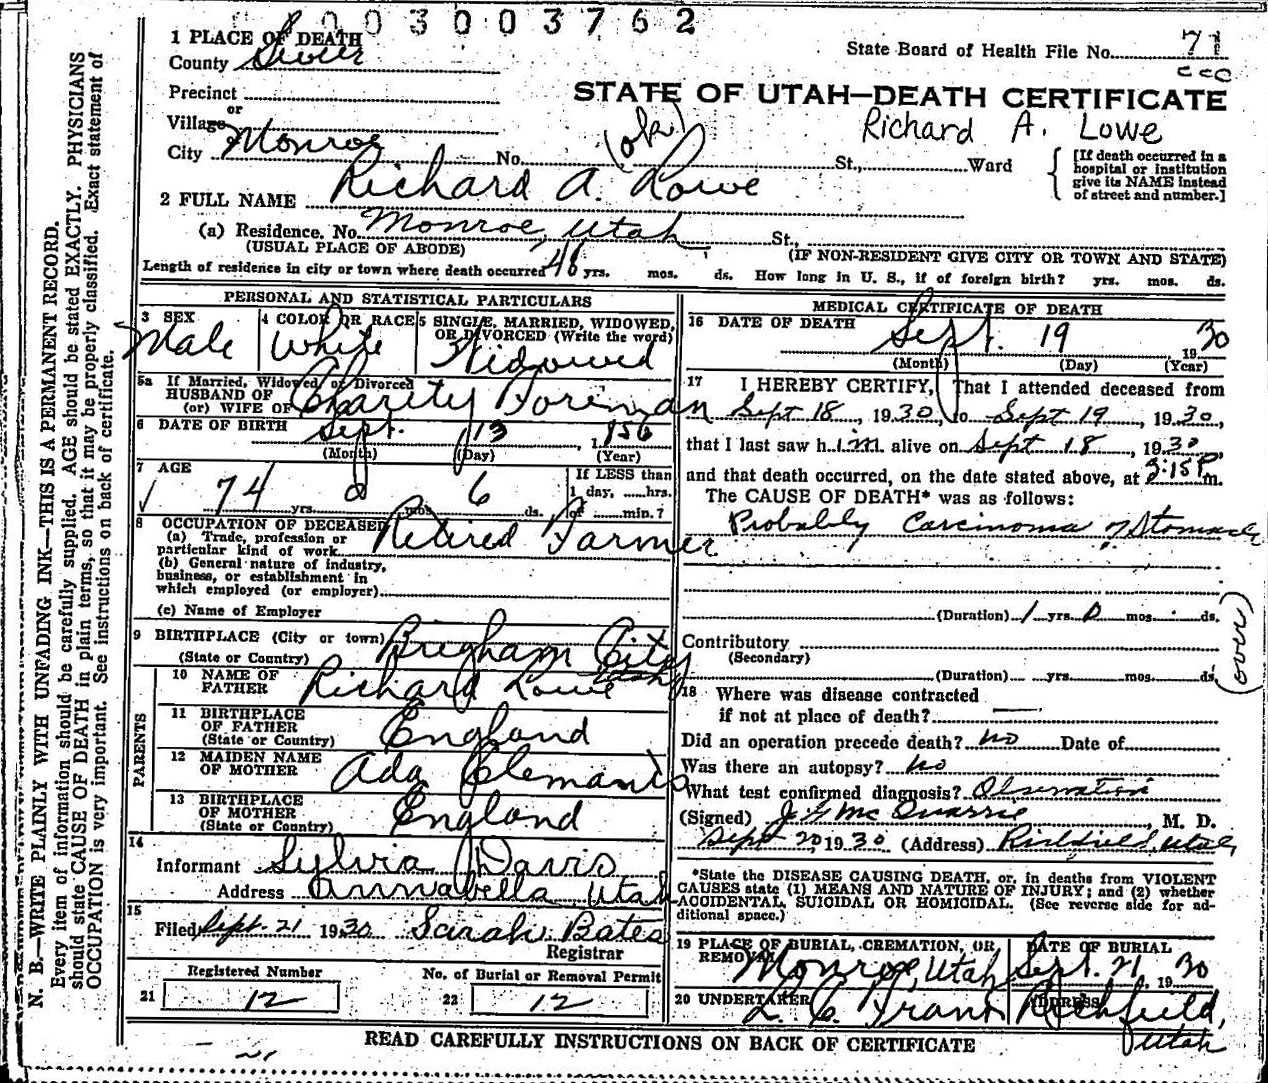 003003762
1 PLACE OF DEATH
County Sevier
State Board of Health File No. 71
Precinct
or
Village
STATE OF UTAH—DEATH CERTIFICATE
Richard A. Lowe
City Monroe No. (ok) St., Ward
[If death occurred in a hospital or institution give its NAME instead of street and number.]
2 FULL NAME Richard A. Lowe
(a) Residence. No. Monroe, Utah St.,
(USUAL PLACE OF ABODE) (IF NON-RESIDENT GIVE CITY OR TOWN AND STATE)
Length of residence in city or town where death occurred 46 yrs. mos. ds. How long in U. S., if of foreign birth? yrs. mos. ds.
PERSONAL AND STATISTICAL PARTICULARS
3 SEX Male
4 COLOR OR RACE White
5 SINGLE, MARRIED, WIDOWED, OR DIVORCED (Write the word)
Widowed
5a If Married, Widowed or Divorced
HUSBAND OF
(or) WIFE OF Charity Foreman
6 DATE OF BIRTH Sept. 13, 1856
(Month) (Day) (Year)
7 AGE
74 yrs. 0 mos. 6 ds.
If LESS than
1 day, ......hrs.
or ......min.?
8 OCCUPATION OF DECEASED
(a) Trade, profession or
particular kind of work Retired Farmer
(b) General nature of industry,
business, or establishment in
which employed (or employer)
(c) Name of Employer
9 BIRTHPLACE (City or town) Brigham City
(State or Country) Utah
PARENTS
10 NAME OF
FATHER Richard Lowe
11 BIRTHPLACE
OF FATHER England
(State or Country)
12 MAIDEN NAME
OF MOTHER Ada Clemants
13 BIRTHPLACE
OF MOTHER England
(State or Country)
14
Informant Sylvia Davis
Address Annabella Utah
15
Filed Sept. 21 1930 Sarah Bates
Registrar
Registered Number
21 12
No. of Burial or Removal Permit
22 12
MEDICAL CERTIFICATE OF DEATH
16 DATE OF DEATH
Sept. 19 1930
(Month) (Day) (Year)
17 I HEREBY CERTIFY, That I attended deceased from
Sept 18, 1930, to Sept 19, 1930,
that I last saw him alive on Sept 18, 1930,
and that death occurred, on the date stated above, at :15 P m.
The CAUSE OF DEATH* was as follows:
Probably Carcinoma of Stomach
(Duration) 1 yrs. 0 mos. ds.
(over)
Contributory
(Secondary)
(Duration) yrs. mos. ds.
18 Where was disease contracted
if not at place of death?
Did an operation precede death? no Date of
Was there an autopsy? no
What test confirmed diagnosis? Observation
(Signed) J G McQuarrie, M. D.
Sept 20, 1930 (Address) Richfield, Utah
*State the DISEASE CAUSING DEATH, or, in deaths from VIOLENT
CAUSES state (1) MEANS AND NATURE OF INJURY; and (2) whether
ACCIDENTAL, SUICIDAL OR HOMICIDAL. (See reverse side for ad-
ditional space.)
19 PLACE OF BURIAL, CREMATION, OR
REMOVAL Monroe, Utah
DATE OF BURIAL
Sept. 21, 1930
20 UNDERTAKER
ADDRESS
Richfield,
Utah
READ CAREFULLY INSTRUCTIONS ON BACK OF CERTIFICATE
N. B.—WRITE PLAINLY WITH UNFADING INK—THIS IS A PERMANENT RECORD.
Every item of information should be carefully supplied. AGE should be stated EXACTLY. PHYSICIANS
should state CAUSE OF DEATH in plain terms, so that it may be properly classified. Exact statement of
OCCUPATION is very important. See instructions on back of certificate.